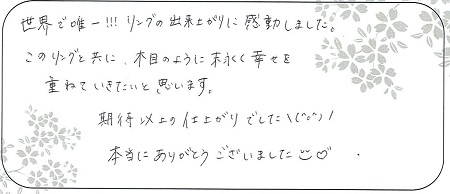 世界で唯一!!! リングの出来上がりに感動しました。
このリングと共に、木目のように末永く幸せを
重ねていきたいと思います。
期待以上の仕上がりでした\(^o^)/
本当にありがとうございました☺♡